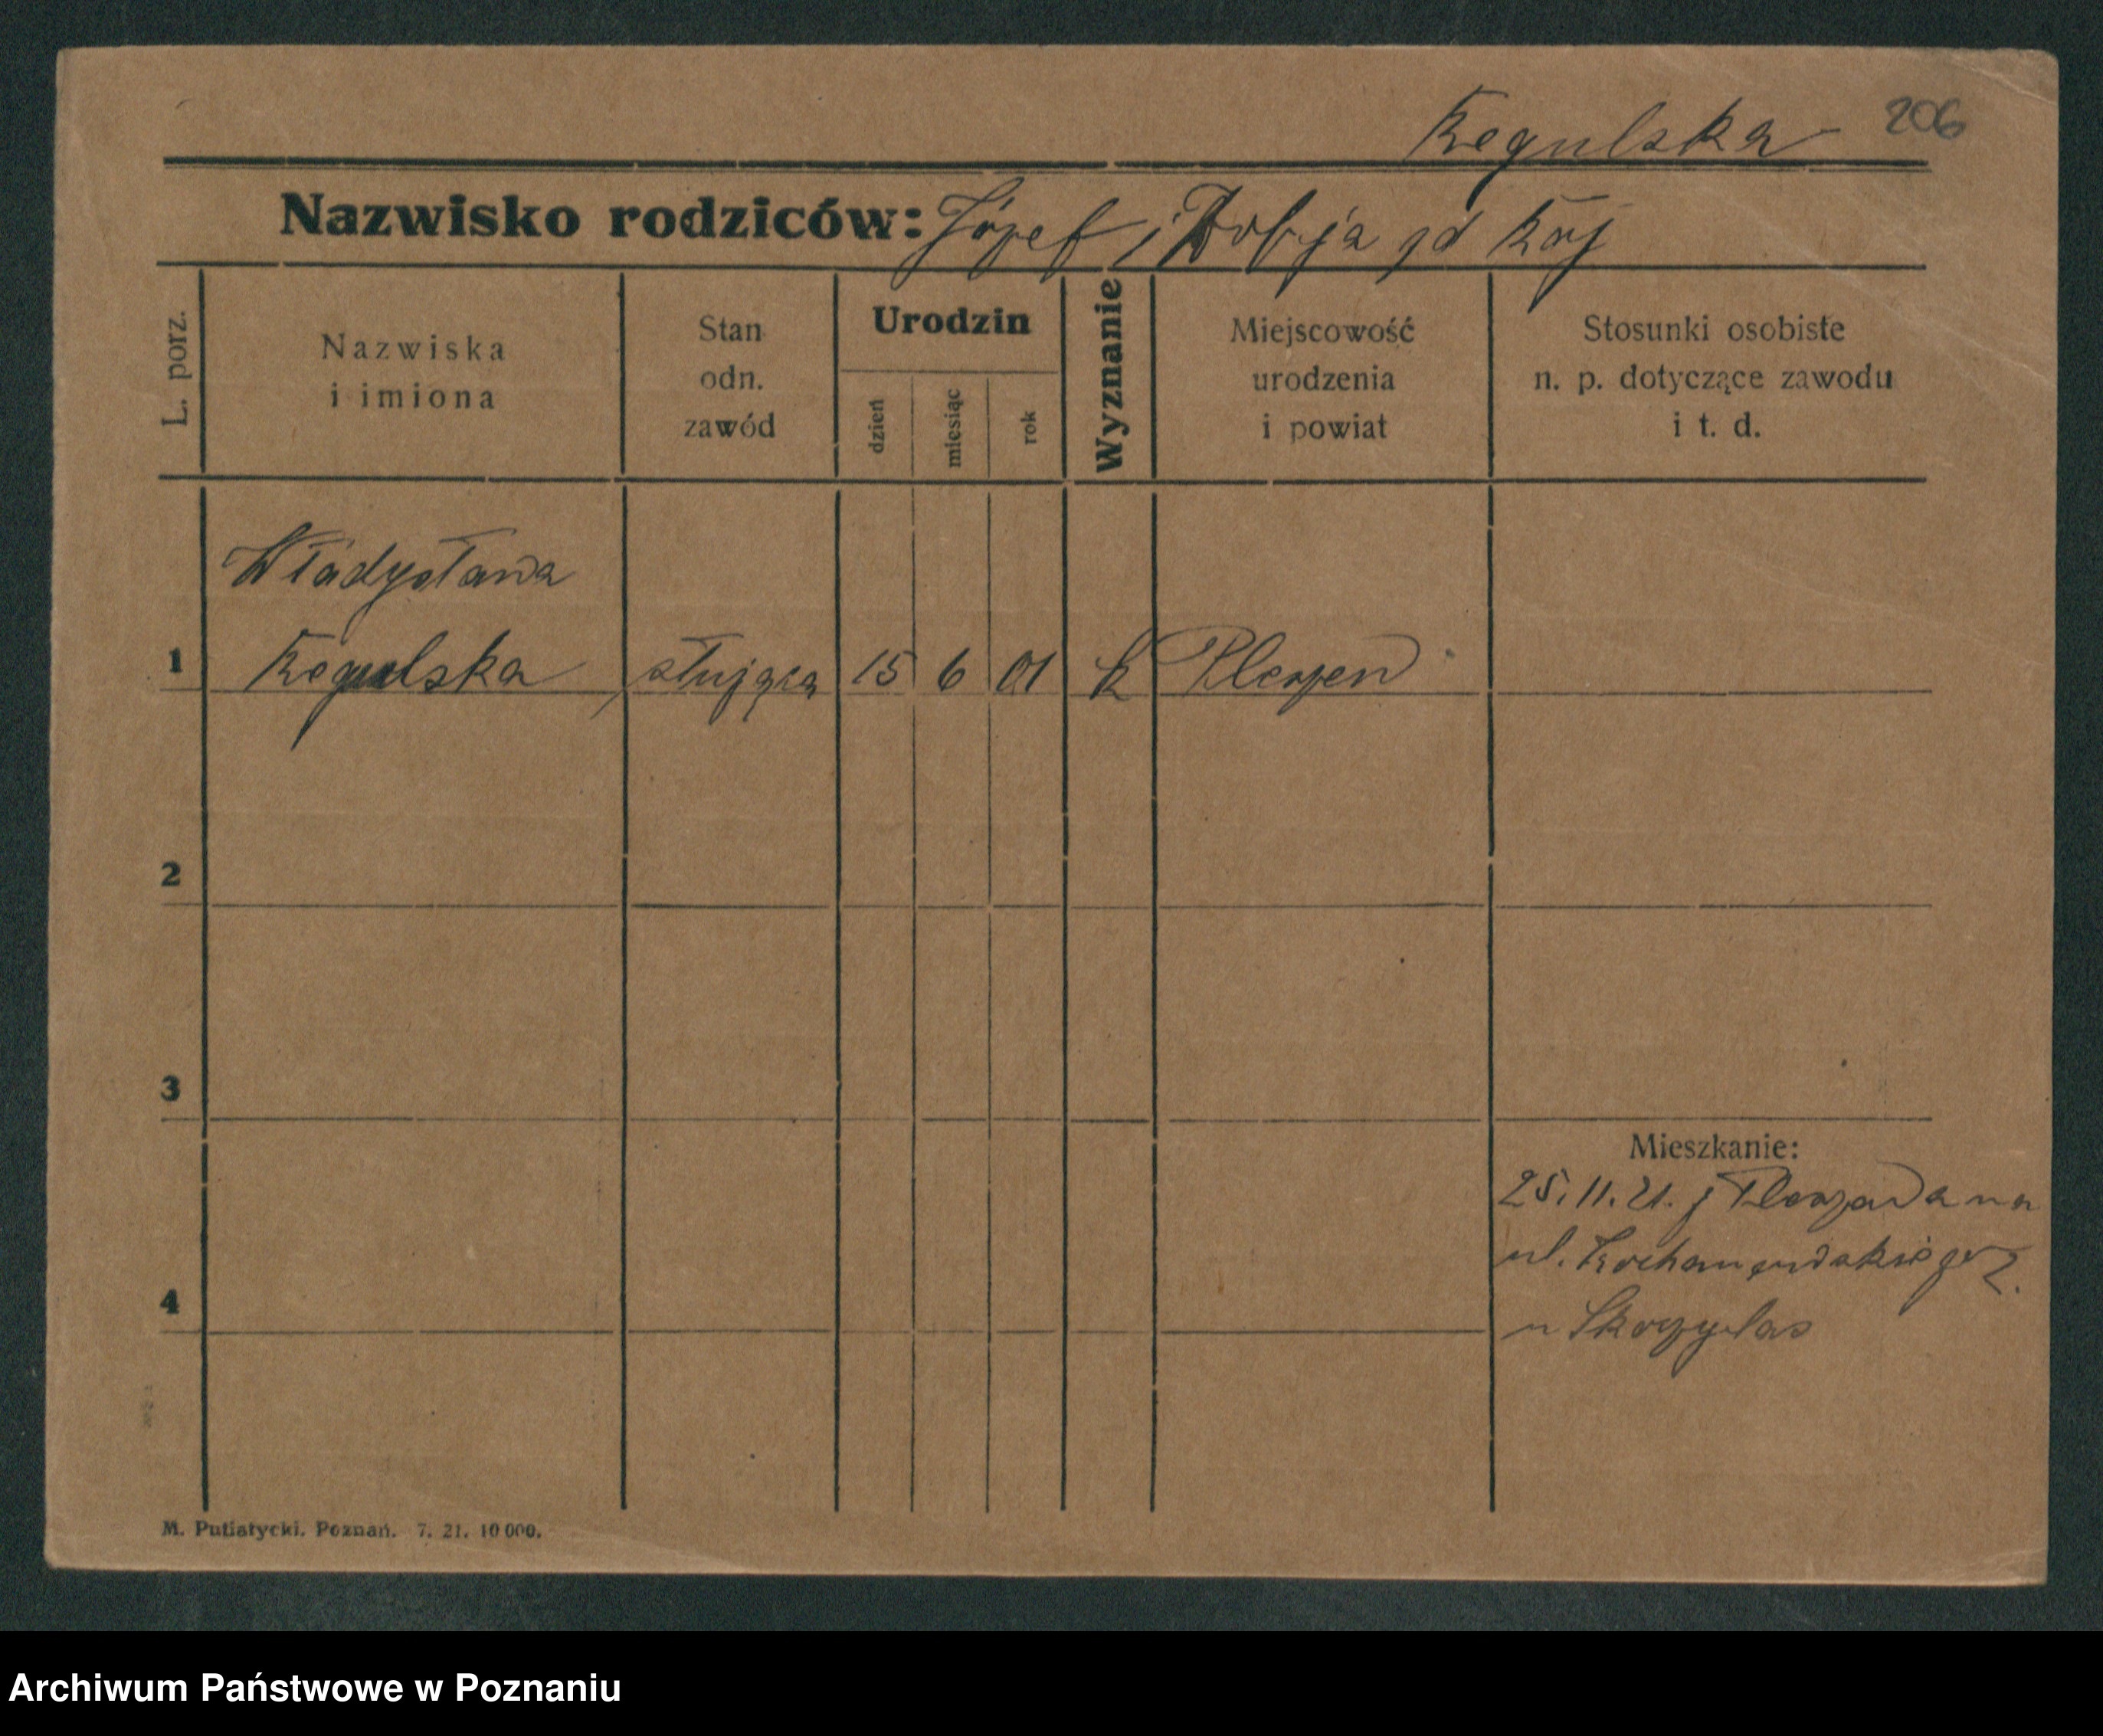 Regulska 206
Nazwisko rodziców: Józef i
L. porz.
Nazwiska i imiona
Stan odn. zawód
Urodzin
dzień
miesiąc
rok
Wyznanie
Miejscowość urodzenia i powiat
Stosunki osobiste n. p. dotyczące zawodu i t. d.
Władysława
1 Regulska służąca 15 6 01 k Pleszew
2
3
Mieszkanie:
25. 11. 21. z Pleszewa na
ul. 2.
4
u Skrzyplas
M. Putiatycki. Poznań. 7. 21. 10 000.
Archiwum Państwowe w Poznaniu